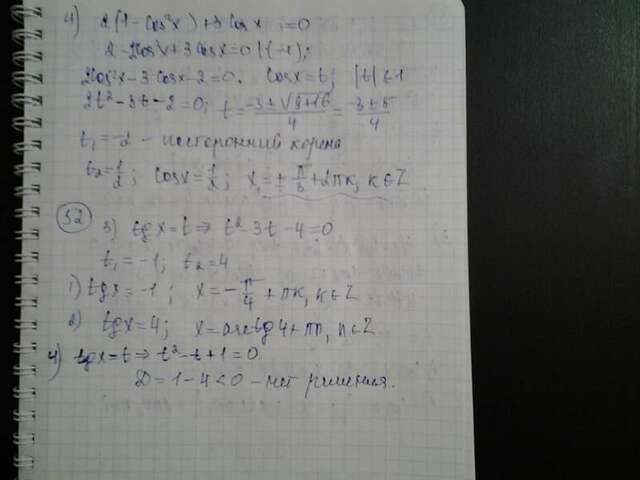 4) 2(1-cos²x)+3cosx =0
2-2cos²x+3cosx=0 |(-1);
2cos²x-3cosx-2=0. cosx=t; |t|≤1
2t²-3t-2=0; t=(-3±√(9+16))/4=(-3±5)/4
t₁=-2 - посторонний корень
t₂=1/2; cosx=1/2; x₁=±π/3+2πk, k∈Z
52
3) tgx=t ⇒ t²-3t-4=0
t₁=-1; t₂=4
1) tgx=-1; x=-π/4+πk, k∈Z
2) tgx=4; x=arctg4+πn, n∈Z
4) tgx=t ⇒ t²-t+1=0
D=1-4<0 - нет решения.